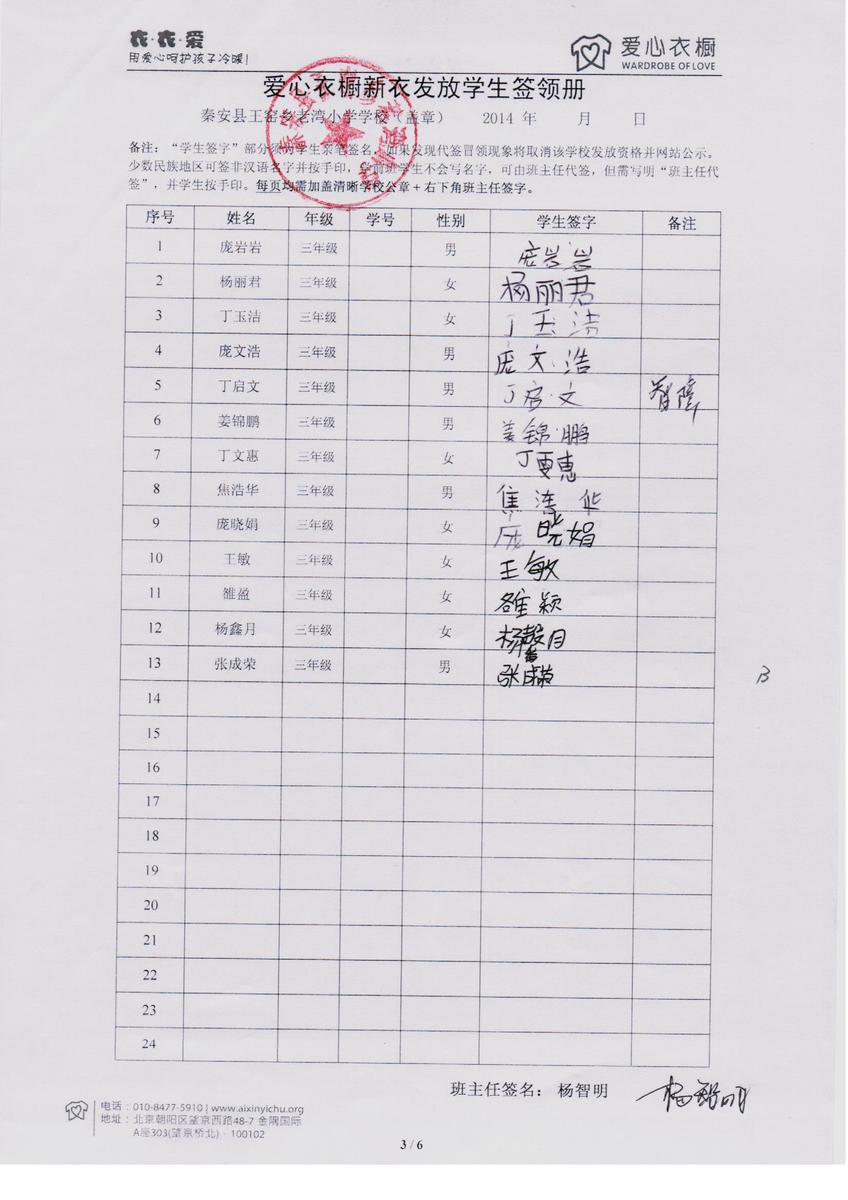 衣·衣·爱
用爱心呵护孩子冷暖!
爱心衣橱
WARDROBE OF LOVE
爱心衣橱新衣发放学生签领册
秦安县王窑乡老湾小学学校(盖章) 2014 年 月 日
备注:“学生签字”部分须为学生亲笔签名,如果发现代签冒领现象将取消该学校发放资格并网站公示。
少数民族地区可签非汉语名字并按手印,学前班学生不会写名字,可由班主任代签,但需写明“班主任代
签”,并学生按手印。每页均需加盖清晰学校公章+右下角班主任签字。
序号 姓名 年级 学号 性别 学生签字 备注
1 庞岩岩 三年级 男 庞岩岩
2 杨丽君 三年级 女 杨丽君
3 丁玉洁 三年级 女 丁玉洁
4 庞文浩 三年级 男 庞文浩
5 丁启文 三年级 男 丁启文 智障
6 姜锦鹏 三年级 男 姜锦鹏
7 丁文惠 三年级 女 丁惠
8 焦浩华 三年级 男 焦浩华
9 庞晓娟 三年级 女 庞晓娟
10 王敏 三年级 女 王敏
11 雒盈 三年级 女 雒颖
12 杨鑫月 三年级 女 杨馨月
13 张成荣 三年级 男 张成荣
13
14
15
16
17
18
19
20
21
22
23
24
班主任签名:杨智明 杨智明
电话:010-8477-5910 | www.aixinyichu.org
地址:北京朝阳区望京西路48-7 金隅国际
A座303(望京桥北)· 100102
3 / 6